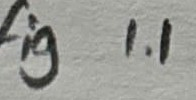 fig 1.1